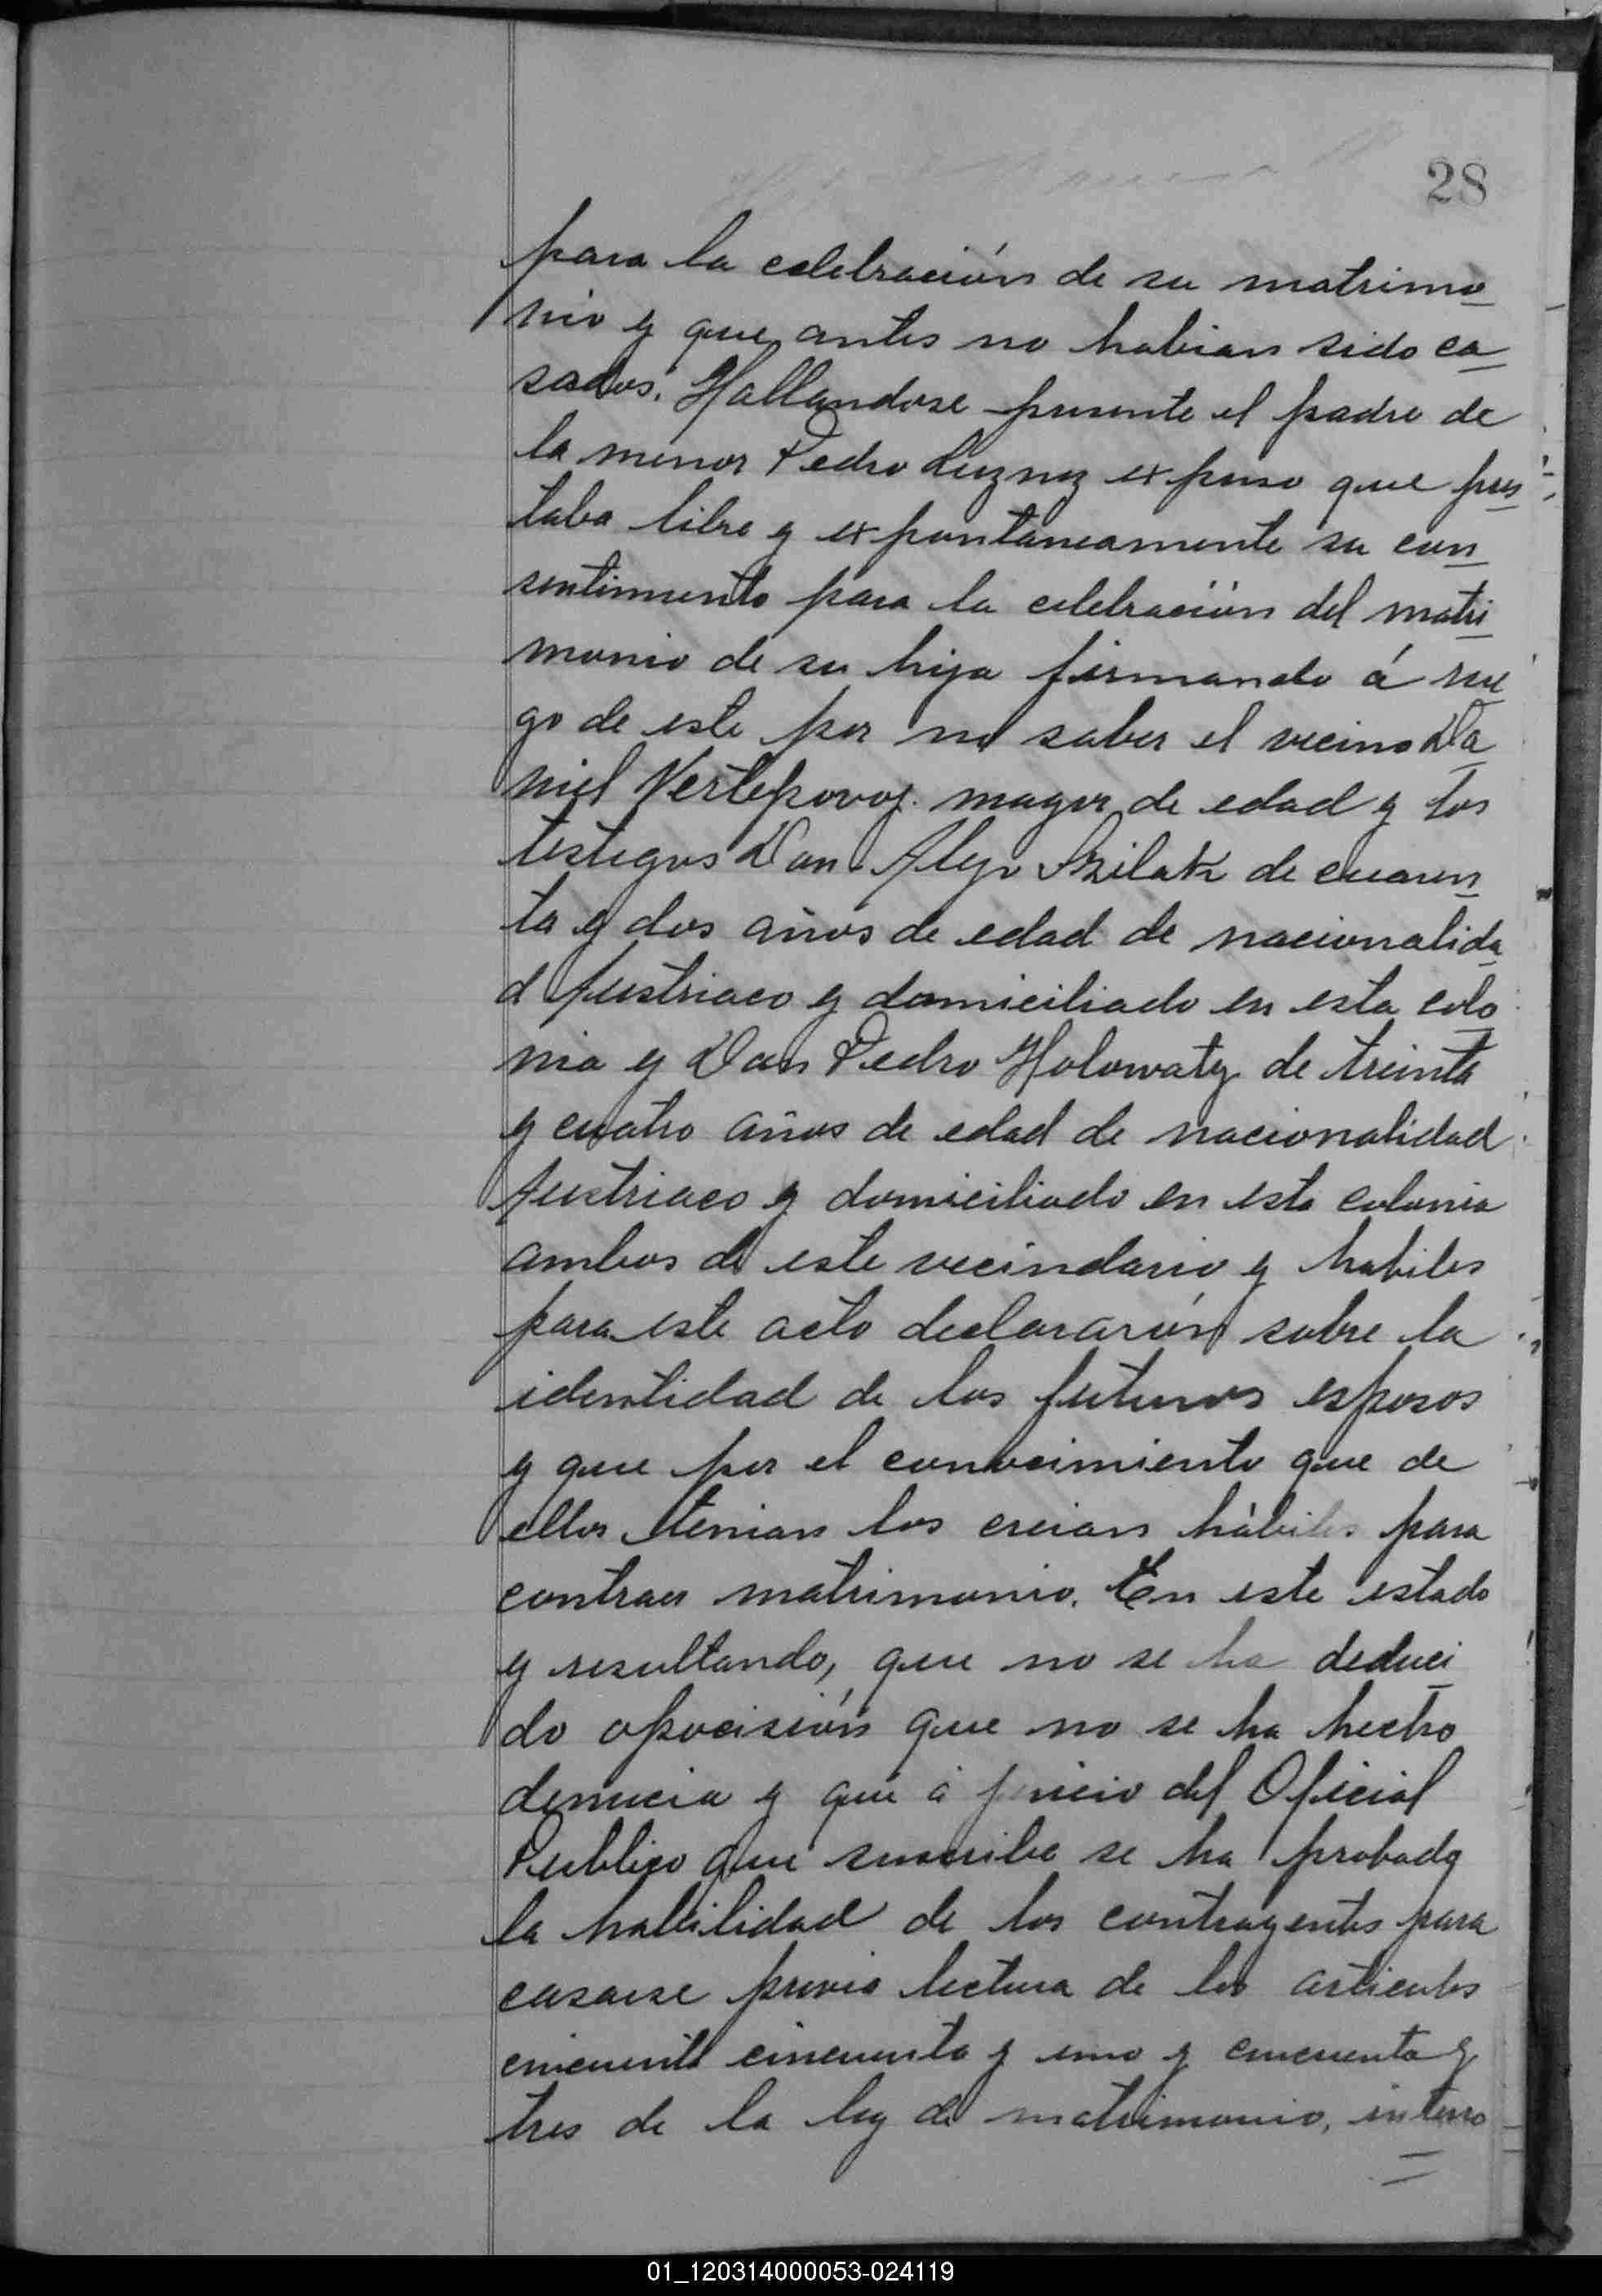 28
para la celebración de su matrimo
nio y que antes no habian sido ca
sados. Hallandose presente el padre de
la menor Pedro Luznoz expuso que pres
taba libre y expontaneamente su con
sentimiento para la celebración del matri
monio de su hija firmando á rue
go de este por no saber el vecino Da
niel Vertepovoz. mayor de edad y los
testigos Don Alejo Szilak de cuaren
ta y dos años de edad de nacionalida
d Austriaco y domiciliado en esta colo
nia y Don Pedro Holowaty de treinta
y cuatro años de edad de nacionalidad
Austriaco y domiciliado en esta colonia
ambos de este vecindario y habiles
para este acto declararón sobre la
identidad de los futuros esposos
y que por el conocimiento que de
ellos tenian los creian hábiles para
contraer matrimonio. En este estado
y resultando, que no se ha deduci
do opocisión que no se ha hecho
denucia y que á juicio del Oficial
Publico que suscribe se ha probado
la habilidad de los contrayentes para
casarse previa lectura de los articulos
cincuenta cincuenta y uno y cincuenta y
tres de la ley de matrimonio, interro
01_120314000053-024119